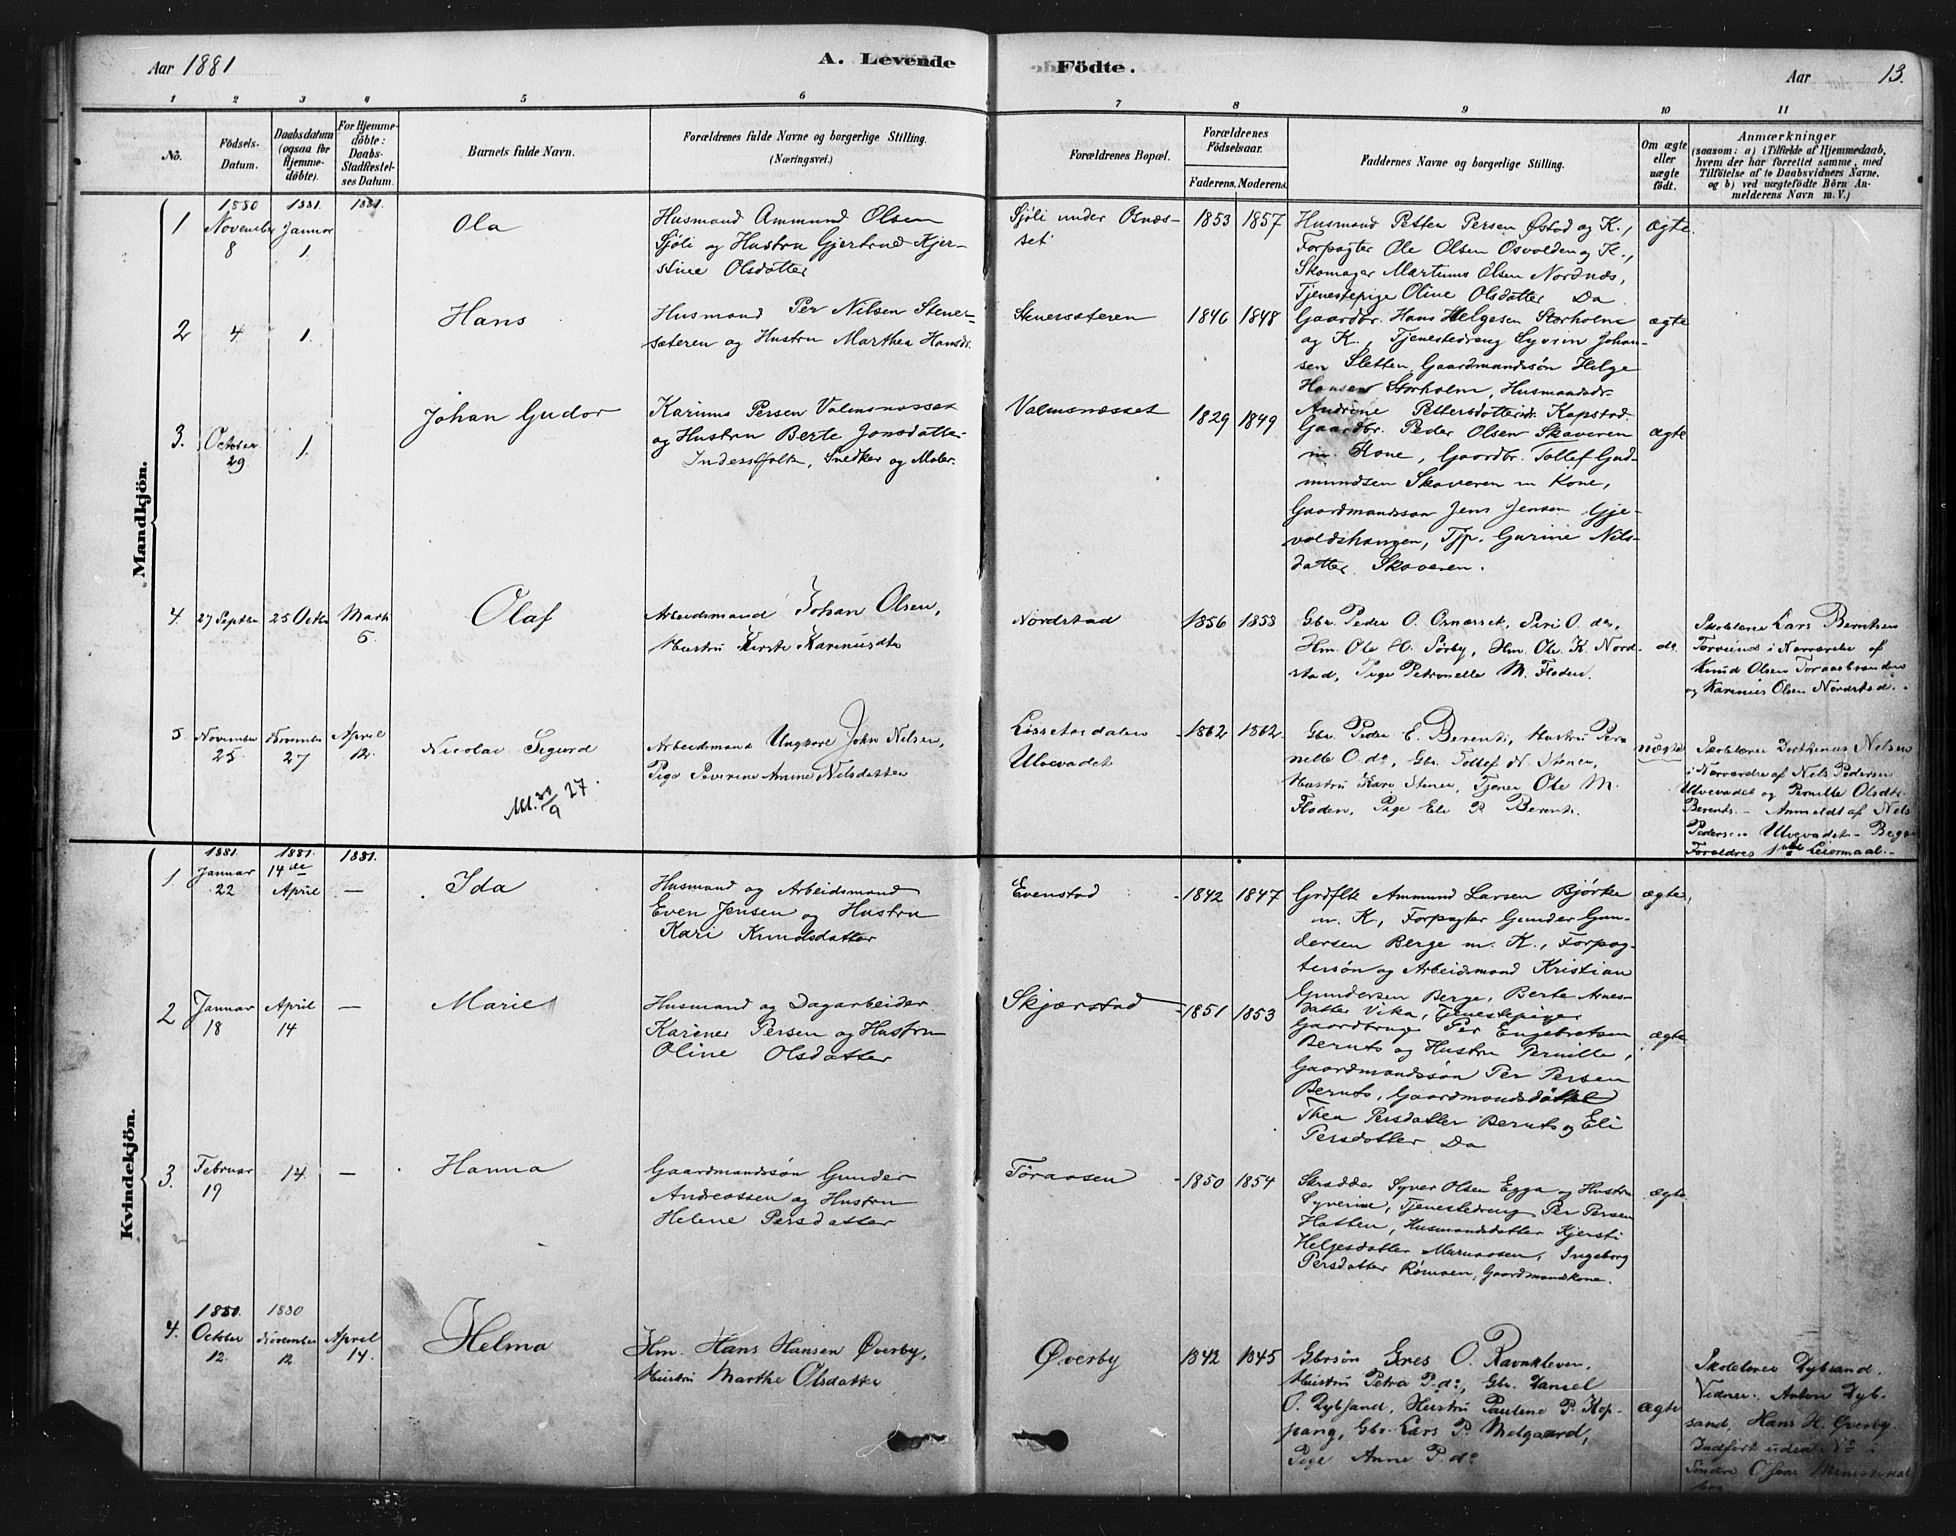 Aar 1881
A. Levende
Födte.
Aar
13.
1 2 3 4 5 6 7 8 9 10 11
No.
Födsels-Datum.
Daabsdatum (ogsaa for Hjemme-döbte).
For Hjemme-döbte: Daabs-Stadfæstel-ses Datum.
Barnets fulde Navn.
Forældrenes fulde Navne og borgerlige Stilling.
(Næringsvei.)
Forældrenes Bopæl.
Forældrenes Födselsaar.
Faderens. Moderens.
Faddernes Navne og borgerlige Stilling.
Om ægte eller uægte födt.
Anmærkninger
(saasom: a) i Tilfælde af Hjemmedaab,
hvem der har forrettet samme, med
Tilföielse af to Daabsvidners Navne,
og b) ved uægtefödte Börn An-
melderens Navn m. V.)
Mandkjön.
1880 1881. 1881.
1
November 8
Januar 1
-
Ola
Husmand Ammund Olsen
Sjöli og Hustru Gjertrud Kjer-
stine Olsdatter
Sjöli under Osnæs-
set
1853 1857
Husmand Petter Persen Østad og K.,
Forpagter Ole Olsen Osvolden og K.,
Skomager Martinus Olsen Nordnæs,
Tjenestepige Oline Olsdatter Do
ægte
2
4.
1.
Hans
Husmand Per Nilsen Stener-
sæteren og Hustru Marthea Hansdr.
Stenersæteren
1846 1848
Gaardbr. Hans Helgesen Storholm
og K., Tjenestedreng Syvrin Johan-
sen Sletten, Gaardmandssön Helge
Hansen Storholm, Husmandsdr.
Andrine Pettersdatter Kopstad.
ægte
3.
October 29
1.
Johan Gudor
Karinus Persen Valmsnæsset
og Hustru Berte Jonsdatter
Inderstfolk, Snedker og Maler.
Valmsnæsset
1829 1849
Gaardbr. Peder Olsen Skaveren
m. Kone, Gaardbr. Tollef Gud-
mundsen Skaveren m Kone,
Gaardmandssön Jens Jensen Gje-
voldshaugen, Tjp. Gurine Nils-
datter Skaveren.
ægte
4.
27 Septbr
25 Octbr
Marts 6
Olaf
Arbeidsmand Johan Olsen,
Hustru Kirste Karinusdtr
Nordstad
1856 1858
Gbr. Peder O. Osnæsset, Siri O. do,
Hm. Ole H. Sörby, Hm. Ole K. Nord-
stad, Pige Petronelle M. Floden.
do
Skolelærer Lars Berntsen
i Nærværelse af
Knud Olsen Toraasbraaten
og Karinus Olsen Nordstad.
5.
November 25
November 27
April 12.
Nicolai Sigurd
Arbeidsmand Ungkarl John Nilsen,
Pige Severine Amine Nilsdatter
Ulvevadet
1862 1862
Gbr. Peder E. Berents, Hustru Per-
nelle O. do, Gbr. Tollef N. Stener,
Hustru Kari Stener, Tjener Ole M.
Floden, Pige Eli P. Berents.
uægte
Skolelærer Dorthenus Nilsen
i Nærværelse af Nils Pedersen
Ulvevadet og Pernille Olsdtr
Berents. - Anmeldt af Nils
Pedersen Ulvevadet - Begge
Forældres 1ste Leiermaal. -
Kvindekjön.
1881. 1881. 1881.
1
Januar 22
14de April
-
Ida
Husmand og Arbeidsmand
Even Jensen og Hustru
Kari Knudsdatter
Evenstad
1842 1847
Grdflk Ammund Larsen Björke
m. K., Forpagter Gunder Gun-
dersen Berge m. K., Forpag-
tersön og Arbeidsmand Kristian
Gundersen Berge, Berte Arnes-
datter Vika, Tjenestepiger
ægte
2
Januar 18
April 14
-
Marie
Husmand og Dagarbeider
Karinus Persen og Hustru
Oline Olsdatter
Skjærstad
1851 1853
Gaardbruger Per Engebretsen
Berents og Hustru Pernille,
Gaardmandssön Per Persen
Berents, Gaardmandsdatter
Thea Persdatter Berents og Eli
Persdatter Do
ægte
3.
Februar 19
14.
-
Hanna
Gaardmandssön Gunder
Andreassen og Hustru
Helene Persdatter
Töraasen
1850 1854
Skrædder Syver Olsen Egga og Hustru
Syverine, Tjenestedreng Per Persen
Hatten, Husmandsdatter Kjersti
Helgesdatter Moraasen, Ingeborg
Persdatter Römoen, Gaardmandskone.
ægte
1880. 1880
4.
October 12.
November 12
April 14.
Helma
Hm. Hans Hansen Øverby,
Hustru Marthe Olsdatter
Øverby
1842 1845
Gbrsön Gres O. Ravnkleven,
Hustru Petra P. do, Gbr. Daniel
O. Dybsand, Hustru Pauline P. Kop-
pang, Gbr. Lars P. Melgaard,
Pige Anne P. do
ægte
Skolelærer Dybsand.
Vidner: Anton Dyb-
sand, Hans H. Øverby
Indfört uden No i
Söndre Osens Ministerial-